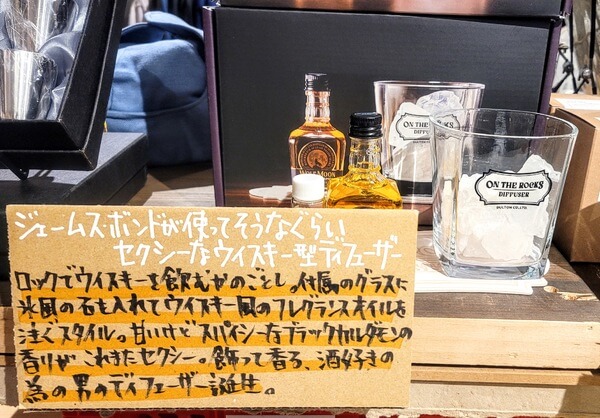 ON THE ROCKS
DIFFUSER
DULTON CO.,LTD.
ON THE ROCKS
DIFFUSER
DULTON CO.,LTD.
ジェームス・ボンドが使ってそうなぐらい
セクシーなウイスキー型ディフューザー
ロックでウイスキーを飲むかのごとし。付属のグラスに
氷風の石を入れてウイスキー風のフレグランスオイルを
注ぐスタイル。甘いけどスパイシーなブラックカルダモンの
香りがこれまたセクシー。飾って香る、酒好きの
為の男のディフューザー誕生。